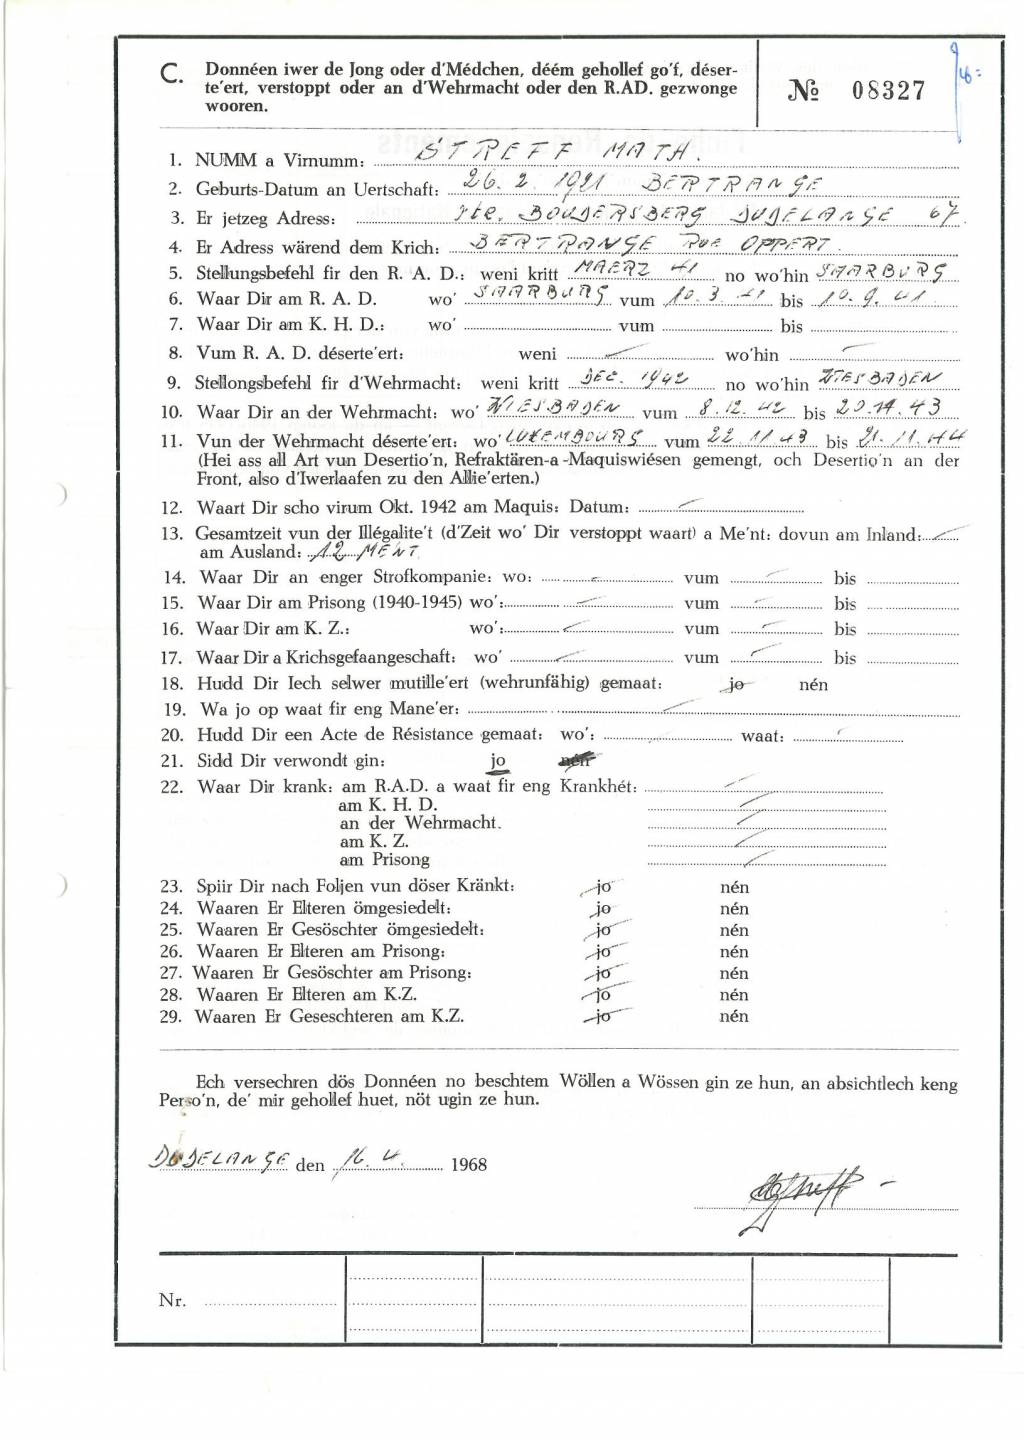 C. Donnéen iwer de Jong oder d'Médchen, déém gehollef go'f, déser-
te'ert, verstoppt oder an d'Wehrmacht oder den R.AD. gezwonge
wooren.
№ 08327
1. NUMM a Virnumm: STREFF MATH.
2. Geburts-Datum an Uertschaft: 26. 2. 1921 BERTRANGE
3. Er jetzeg Adress: rte. BOUDERSBERG DUDELANGE 67
4. Er Adress wärend dem Krich: BERTRANGE RUE OPPERT.
5. Stellungsbefehl fir den R. A. D.: weni kritt MAERZ 41 no wo'hin SAARBURG
6. Waar Dir am R. A. D. wo' SAARBURG vum 10. 3. 41 bis 10. 9. 41.
7. Waar Dir am K. H. D.: wo' vum bis
8. Vum R. A. D. déserte'ert: weni wo'hin
9. Stellongsbefehl fir d'Wehrmacht: weni kritt DEC. 1942 no wo'hin WIESBADEN
10. Waar Dir an der Wehrmacht: wo' WIESBADEN vum 8. 12. 42 bis 20. 11. 43
11. Vun der Wehrmacht déserte'ert: wo' LUXEMBOURG vum 22 11 43 bis 21. 11. 44
(Hei ass all Art vun Desertio'n, Refraktären-a-Maquiswiésen gemengt, och Desertio'n an der
Front, also d'Iwerlaafen zu den Allie'erten.)
12. Waart Dir scho virum Okt. 1942 am Maquis: Datum:
13. Gesamtzeit vun der Illégalite't (d'Zeit wo' Dir verstoppt waart) a Me'nt: dovun am Inland:
am Ausland: 12 MENT
14. Waar Dir an enger Strofkompanie: wo: vum bis
15. Waar Dir am Prisong (1940-1945) wo': vum bis
16. Waar Dir am K. Z.: wo': vum bis
17. Waar Dir a Krichsgefaangeschaft: wo' vum bis
18. Hudd Dir Iech selwer mutille'ert (wehrunfähig) gemaat: jo nén
19. Wa jo op waat fir eng Mane'er:
20. Hudd Dir een Acte de Résistance gemaat: wo': waat:
21. Sidd Dir verwondt gin: jo nén
22. Waar Dir krank: am R.A.D. a waat fir eng Krankhét:
am K. H. D.
an der Wehrmacht.
am K. Z.
am Prisong
23. Spiir Dir nach Foljen vun döser Kränkt: jo nén
24. Waaren Er Elteren ömgesiedelt: jo nén
25. Waaren Er Gesöschter ömgesiedelt: jo nén
26. Waaren Er Elteren am Prisong: jo nén
27. Waaren Er Gesöschter am Prisong: jo nén
28. Waaren Er Elteren am K.Z. jo nén
29. Waaren Er Geseschteren am K.Z. jo nén
Ech versechren dös Donnéen no beschtem Wöllen a Wössen gin ze hun, an absichtlech keng
Perso'n, de' mir gehollef huet, nöt ugin ze hun.
DUDELANGE den 16. 4. 1968
Nr.